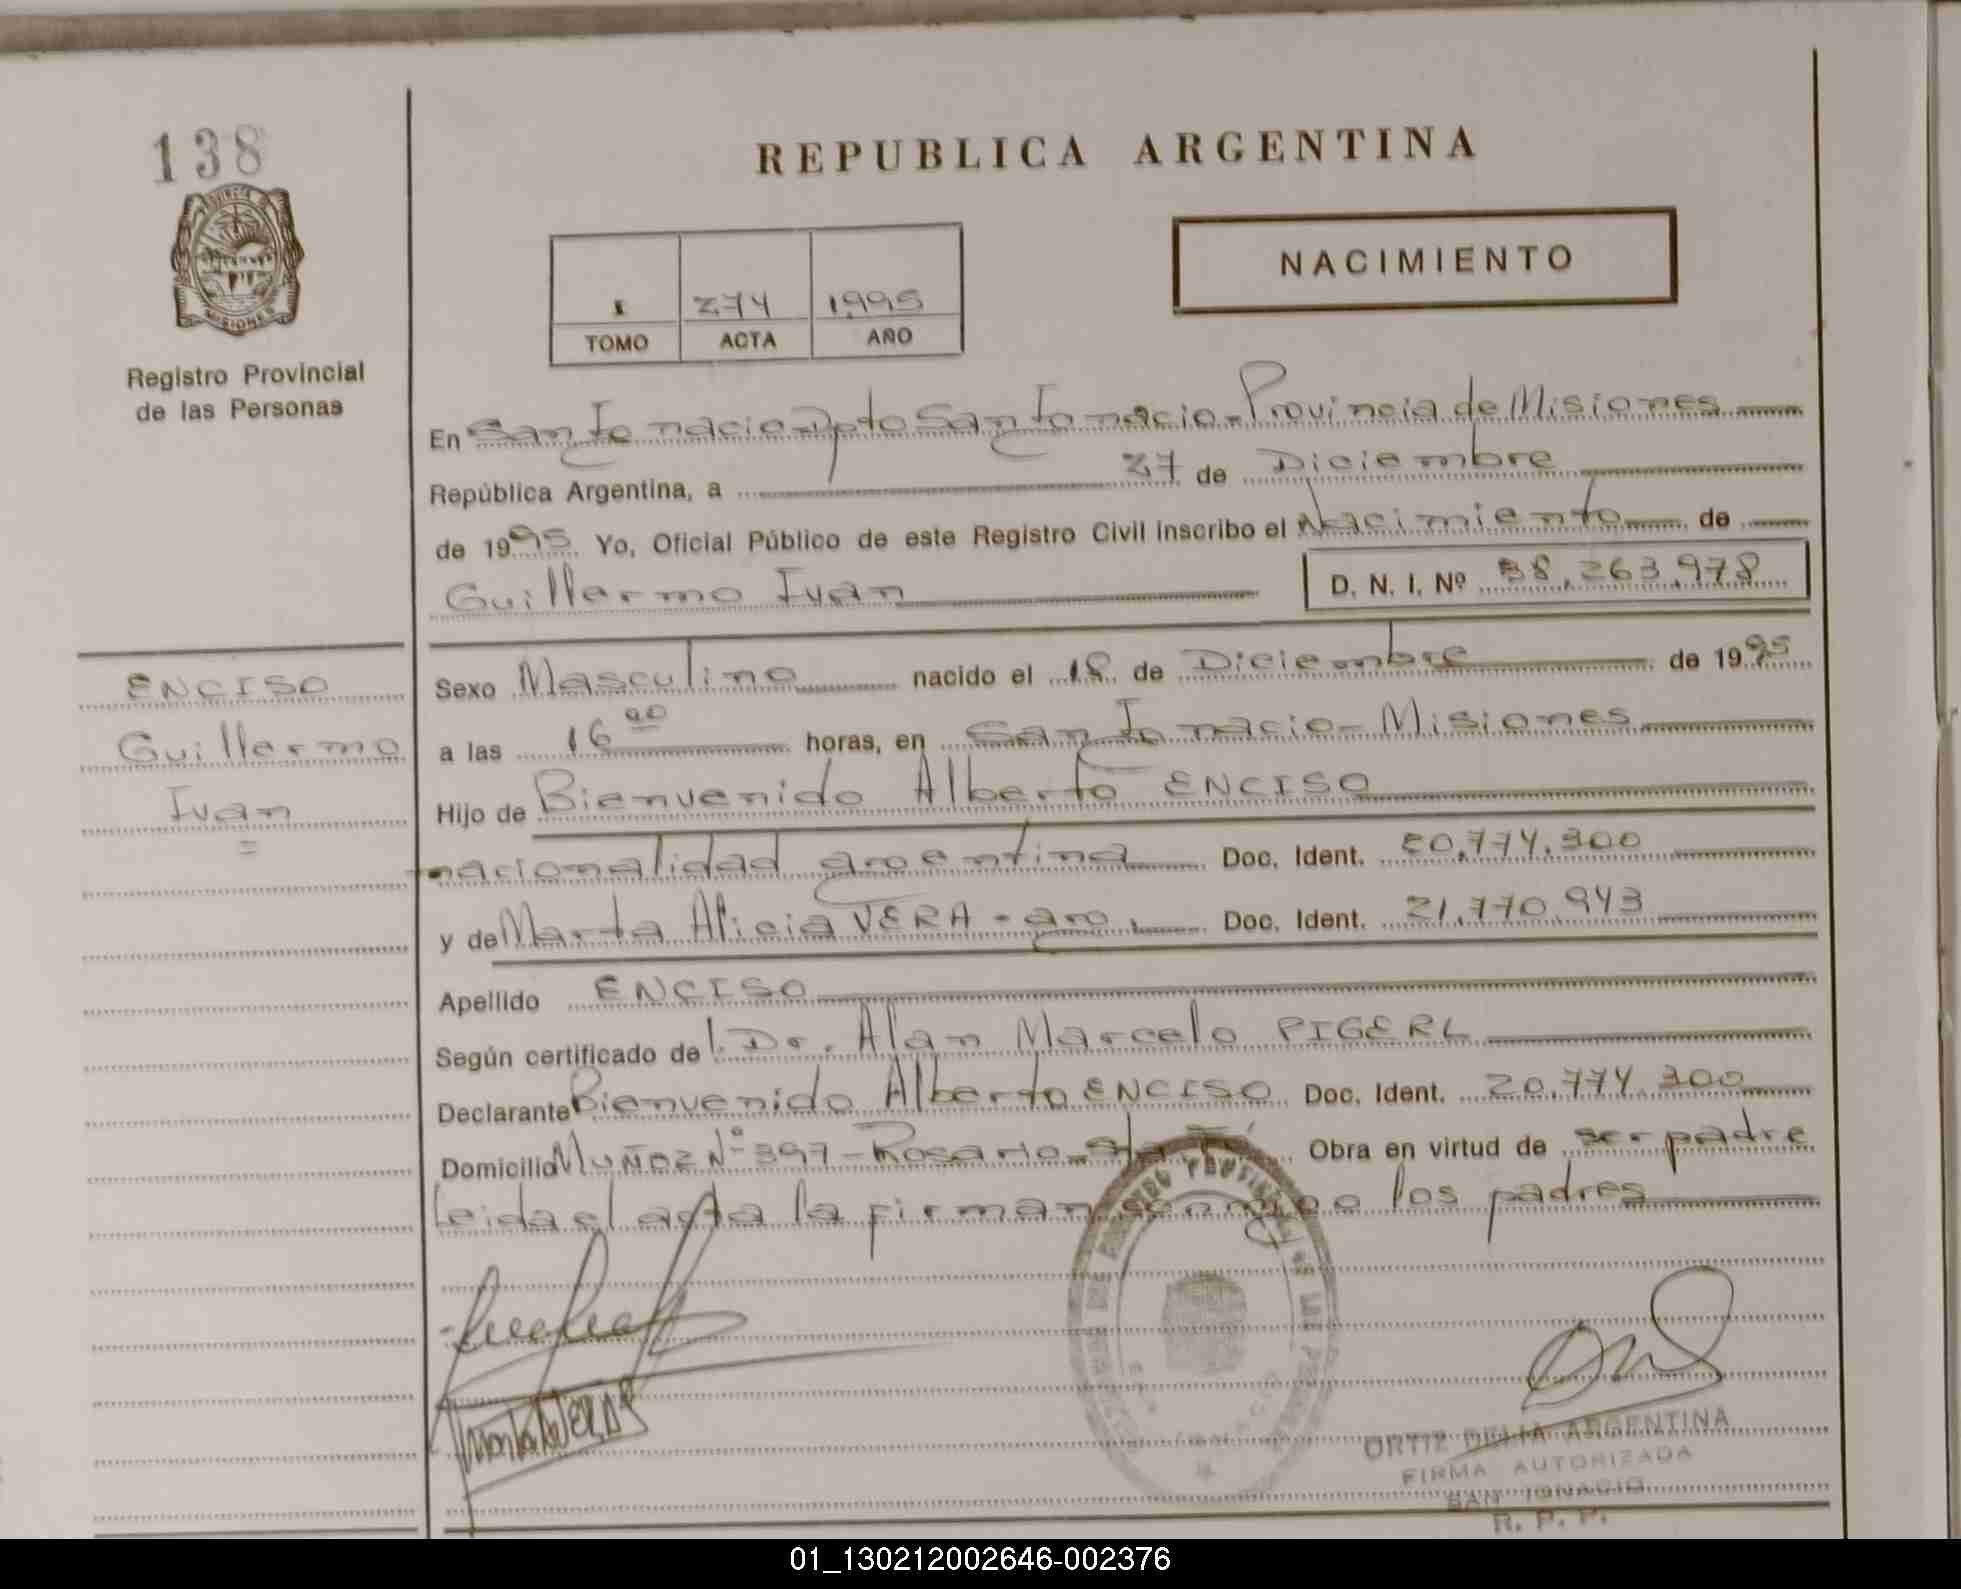 138
REPUBLICA ARGENTINA
PROVINCIA
MISIONES
Registro Provincial
de las Personas
NACIMIENTO
1 274 1995
TOMO ACTA AÑO
En San Ignacio Dpto San Ignacio - Provincia de Misiones
República Argentina, a 27 de Diciembre
de 1995 Yo, Oficial Público de este Registro Civil inscribo el Nacimiento de
Guillermo Ivan
D. N. I. Nº 38.263.978
ENCISO
Guillermo
Ivan
Sexo Masculino nacido el 18 de Diciembre de 1995
a las 16 00 horas, en San Ignacio - Misiones
Hijo de Bienvenido Alberto ENCISO
nacionalidad argentina Doc. Ident. 20.774.300
y de Marta Alicia VERA - arg. Doc. Ident. 21.770.943
Apellido ENCISO
Según certificado de l. Dr. Alan Marcelo PIGERL
Declarante Bienvenido Alberto ENCISO Doc. Ident. 20.774.300
Domicilio MUÑOZ Nº 397 - Rosario - Sta Fé Obra en virtud de ser padre
leida el acta la firman conmigo los padres
ORTIZ DELIA ARGENTINA
FIRMA AUTORIZADA
SAN IGNACIO
R. P. P.
01_130212002646-002376